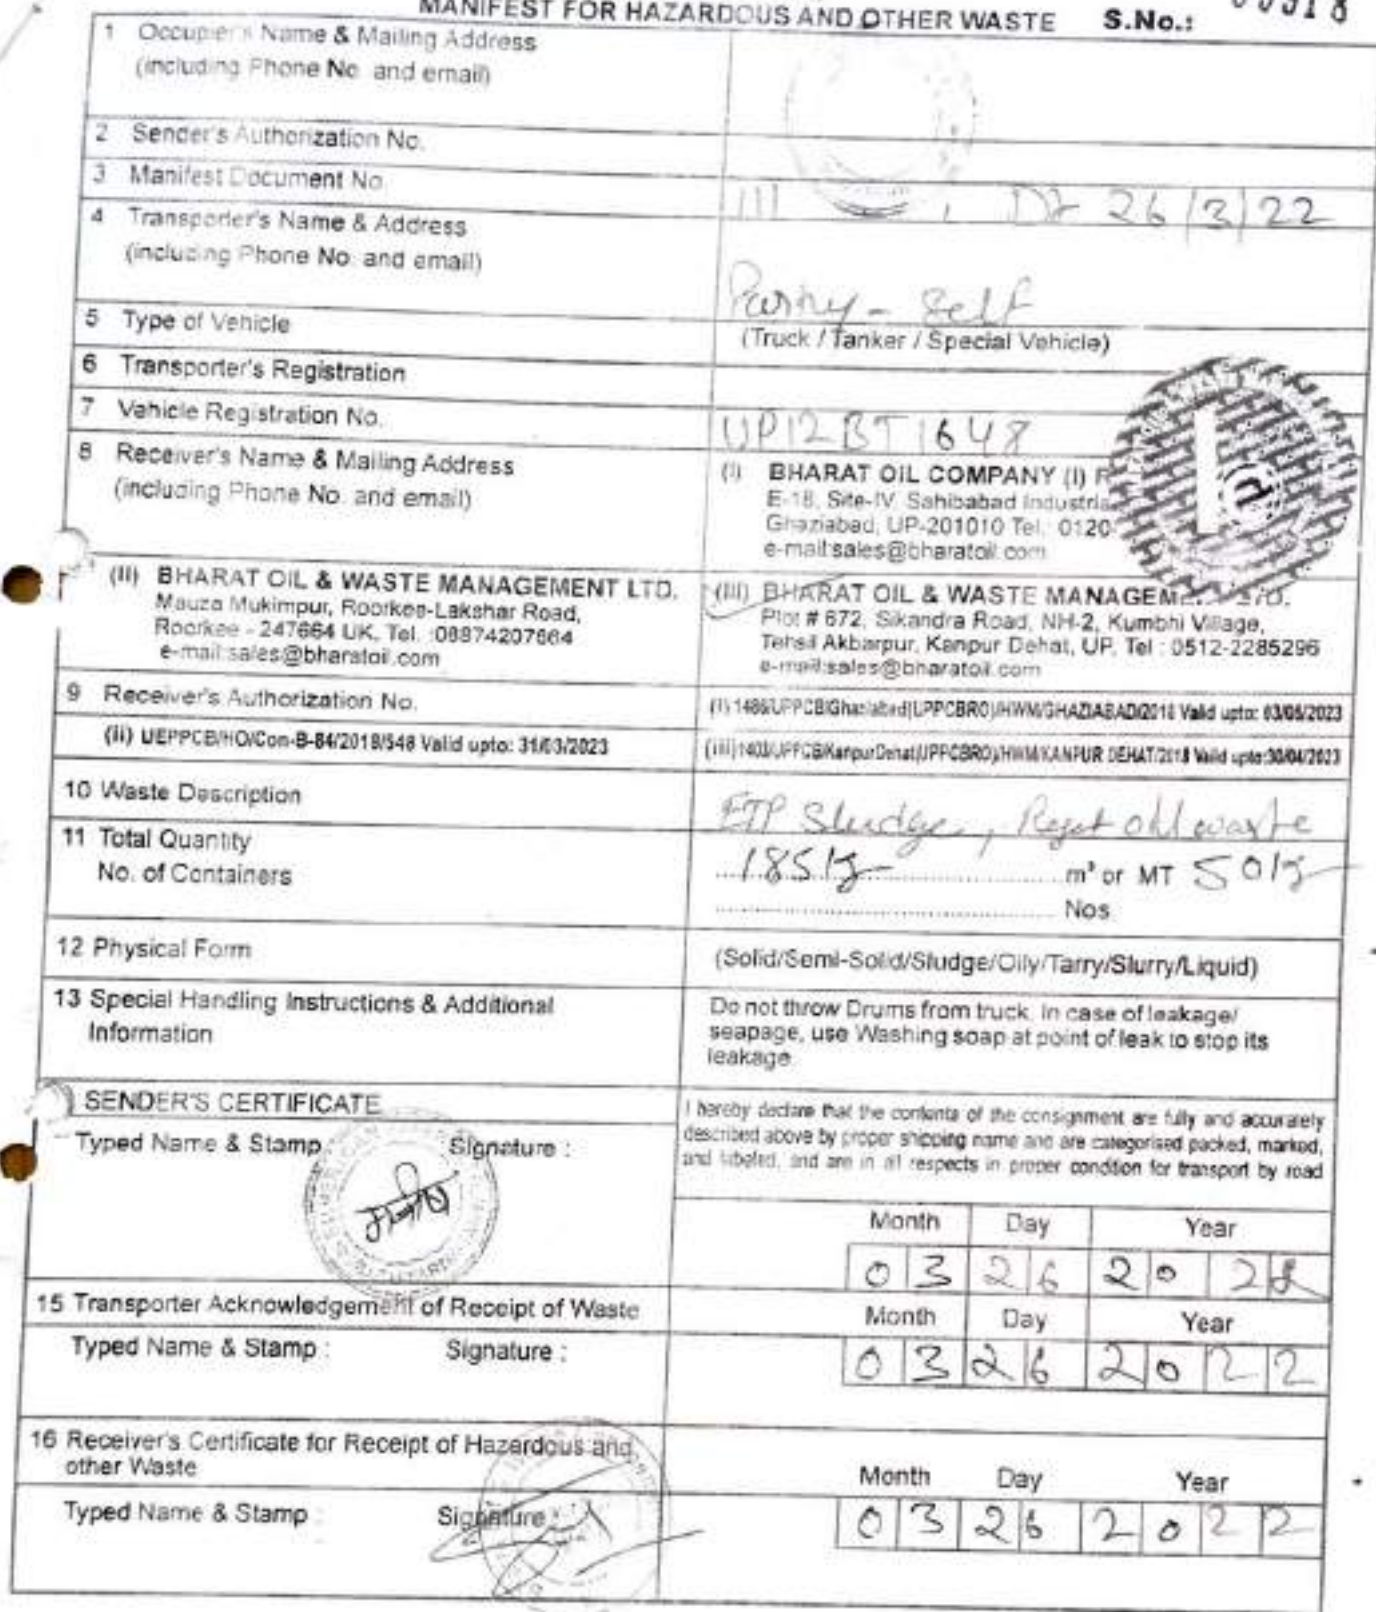 MANIFEST FOR HAZARDOUS AND OTHER WASTE S.No.:
1 Occupier's Name & Mailing Address
(including Phone No. and email)
2 Sender's Authorization No.
3 Manifest Document No.
111 Dt 26/3/22
4 Transporter's Name & Address
(including Phone No. and email)
Party - Self
5 Type of Vehicle
(Truck / Tanker / Special Vehicle)
6 Transporter's Registration
7 Vehicle Registration No.
UP12BT1648
8 Receiver's Name & Mailing Address
(including Phone No. and email)
(I) BHARAT OIL COMPANY (I)
E-18, Site-IV, Sahibabad Industria
Ghaziabad, UP-201010 Tel.: 0120-
e-mail:sales@bharatoil.com
(II) BHARAT OIL & WASTE MANAGEMENT LTD.
Mauza Mukimpur, Roorkee-Lakshar Road,
Roorkee - 247664 UK, Tel. :08874207664
e-mail:sales@bharatoil.com
(III) BHARAT OIL & WASTE MANAGEM LTD.
Plot # 672, Sikandra Road, NH-2, Kumbhi Village,
Tehsil Akbarpur, Kanpur Dehat, UP, Tel : 0512-2285296
e-mail:sales@bharatoil.com
9 Receiver's Authorization No.
(i) 1486/UPPCB/Ghaziabad(UPPCBRO)/HWM/GHAZIABAD/2018 Valid upto: 03/05/2023
(ii) UEPPCB/HO/Con-B-84/2018/548 Valid upto: 31/03/2023
(iii) 1403/UPPCB/KanpurDehat(UPPCBRO)/HWM/KANPUR DEHAT/2018 Valid upto:30/04/2023
10 Waste Description
ETP Sludge, Reject oil waste
11 Total Quantity
185kg m³ or MT 50kg
No. of Containers
Nos
12 Physical Form
(Solid/Semi-Solid/Sludge/Oily/Tarry/Slurry/Liquid)
13 Special Handling Instructions & Additional
Information
Do not throw Drums from truck. In case of leakage/
seapage, use Washing soap at point of leak to stop its
leakage.
SENDER'S CERTIFICATE
Typed Name & Stamp Signature :
I hereby declare that the contents of the consignment are fully and accurately
described above by proper shipping name and are categorised packed, marked,
and labeled, and are in all respects in proper condition for transport by road
Month Day Year
03 26 2022
15 Transporter Acknowledgement of Receipt of Waste
Month Day Year
Typed Name & Stamp : Signature :
03 26 2022
16 Receiver's Certificate for Receipt of Hazardous and
other Waste
Month Day Year
Typed Name & Stamp : Signature
03 26 2022